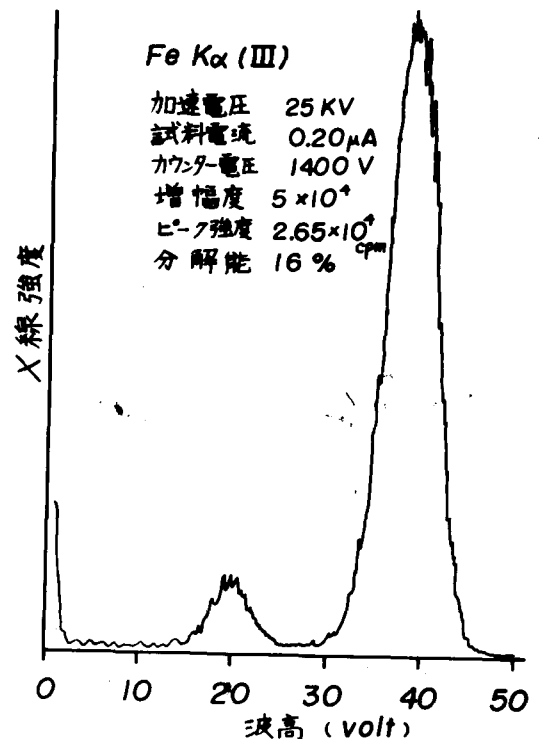 Fe Kα (III)
加速電圧 25 KV
試料電流 0.20μA
カウンター電圧 1400 V
増幅度 5×10⁴
ピーク強度 2.65×10⁴ cpm
分解能 16 %
X線強度
0 10 20 30 40 50
波高 (volt)